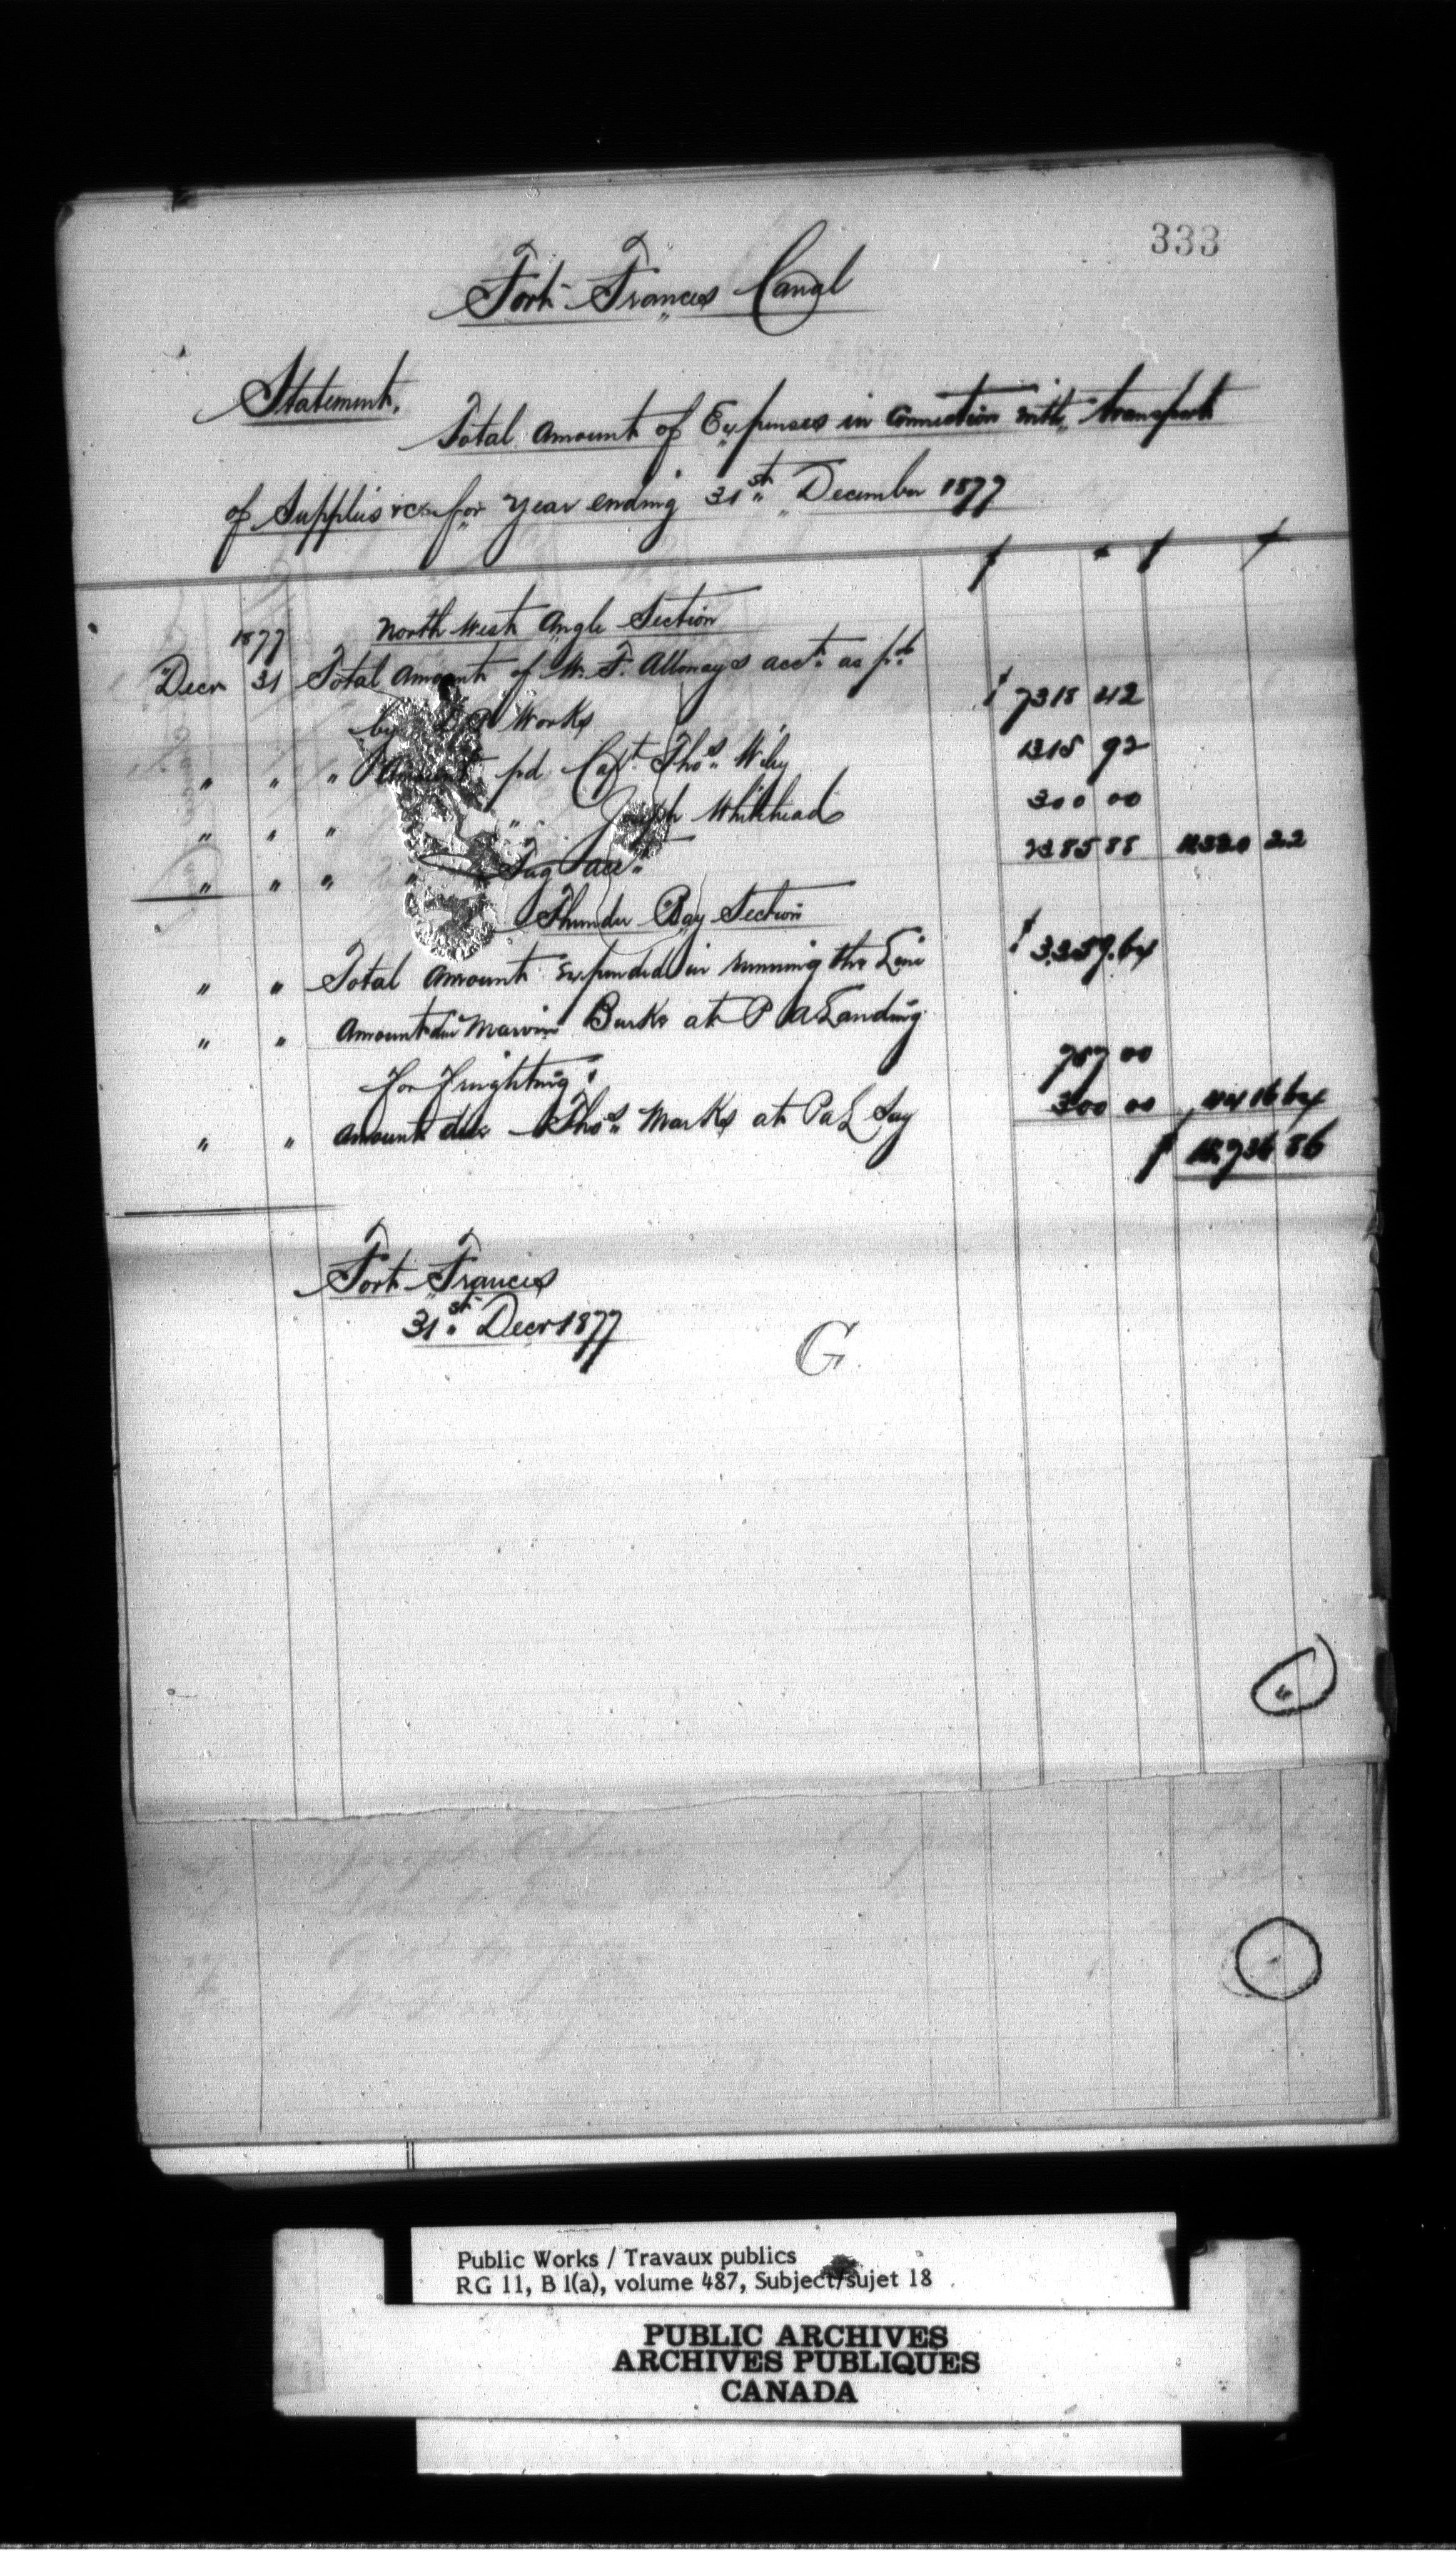 333
Fort Frances Canal
Statement,
Total Amount of Expenses in Connection with transport
of Supplies &c for Year ending 31st December 1877
$ $
1877 North West Angle Section
Decr 31 Total Amount of W. F. Alloways acct. as pd
by Works $ 7318 42
" " " Amount pd Capt. Thos. Wiley 1315 92
" " " " Joseph Whitehead 300 00
" " " " Tug acct. 2385 88 11320 22
Thunder Bay Section
" " Total Amount Expended in running the Line $ 3359.64
" " Amount due Marvin Burke at P A Landing
for freighting 757 00
" " Amount due Thos. Marks at P a L Say 300 00 4416 64
$ 15,736 86
Fort Frances
31st Decr 1877
G
Public Works / Travaux publics
RG 11, B 1(a), volume 487, Subject/sujet 18
PUBLIC ARCHIVES
ARCHIVES PUBLIQUES
CANADA